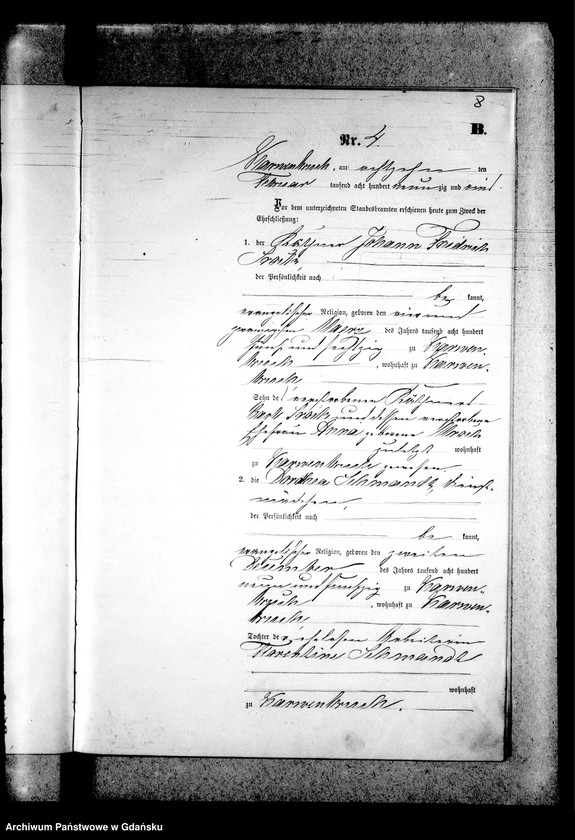 8
B.
Nr. 4.
Karwenbruch, am achtzehn ten
Februar tausend acht hundert neun zig und eins.
Vor dem unterzeichneten Standesbeamten erschienen heute zum Zweck der
Eheschließung:
1. der Büdner Johann Friedrich
der Persönlichkeit nach
be kannt,
evangelischer Religion, geboren den
zwanzigsten März des Jahres tausend acht hundert
fünf und sechszig zu Karwen-
bruch, wohnhaft zu Karwen-
bruch
Sohn des verstorbenen
und dessen verstorbene
Ehefrau Anna geborene
zuletzt wohnhaft
zu Karwenbruch gewesen.
2. die Dorothea Schmandt, Dienst-
mädchen,
der Persönlichkeit nach
be kannt,
evangelischer Religion, geboren den zweiten
Dezember des Jahres tausend acht hundert
neun und fünfzig zu Karwen-
bruch, wohnhaft zu Karwen-
bruch
Tochter der ehelosen Arbeiterin
Florentine Schmandt
wohnhaft
zu Karwenbruch.
Archiwum Państwowe w Gdańsku